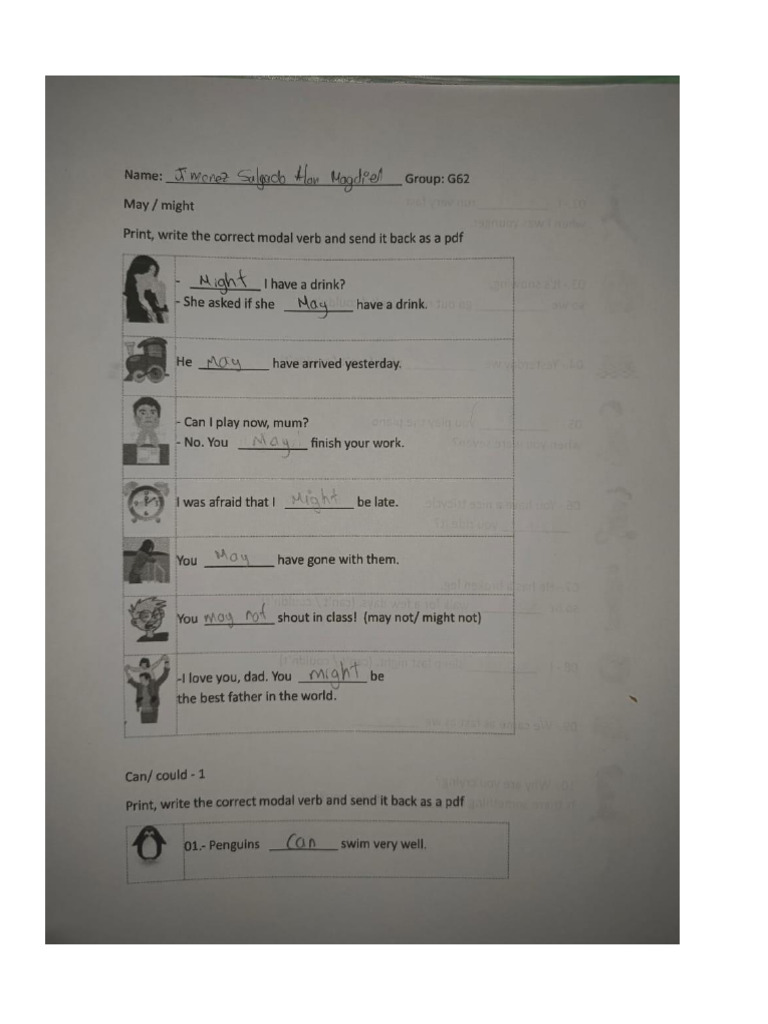 Name: Jimenez Salgado Alan Magdiel Group: G62
May / might
Print, write the correct modal verb and send it back as a pdf
- Might I have a drink?
- She asked if she May have a drink.
He May have arrived yesterday.
- Can I play now, mum?
- No. You May finish your work.
I was afraid that I Might be late.
You May have gone with them.
You may not shout in class! (may not/ might not)
-I love you, dad. You might be
the best father in the world.
Can/ could - 1
Print, write the correct modal verb and send it back as a pdf
01.- Penguins Can swim very well.